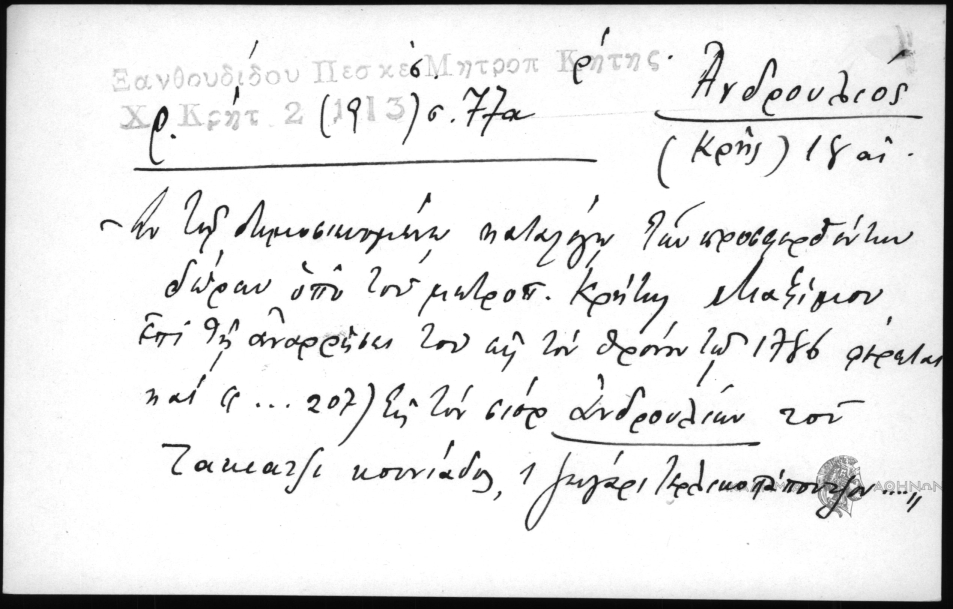 Ξανθουδίδου Πεσκέσ Μητροπ Κρήτης.
Χ. Κρήτ 2 (1913) σ. 77α
Ἀνδρουλιός
(Κρής) 18 αἰ.
Ἐν τῷ δημοσιευομένῳ καταλόγῳ τῶν προσφερθέντων
δώρων ὑπὸ τοῦ μητροπ. Κρήτης Μαξίμου
ἐπὶ τῇ ἀναρρήσει του εἰς τὸν θρόνον τῷ 1786 φέρεται
καὶ " ... 207) Εἰς τὸν σιὸρ Ἀνδρουλιὸν τοῦ
κουνιάδος, 1 ζυγάρι τερλικοπάπουτζον ...."
ΑΘΗΝΩΝ